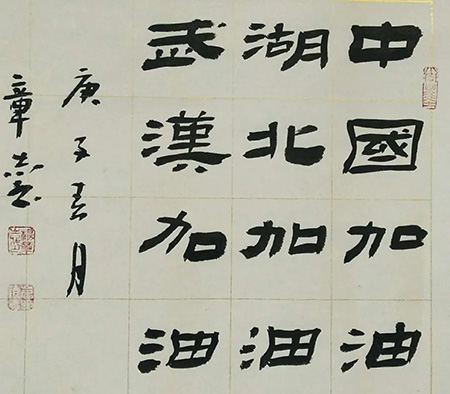 中國加油
湖北加油
武漢加油
庚子春月
章